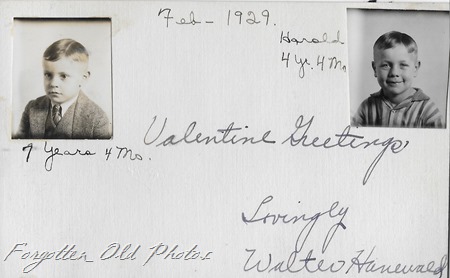 Feb - 1929.
Harold
4 yr. 4 Mo
7 Years 4 Mo.
Valentine Greetings
Lovingly
Walter Hanewald
Forgotten Old Photos